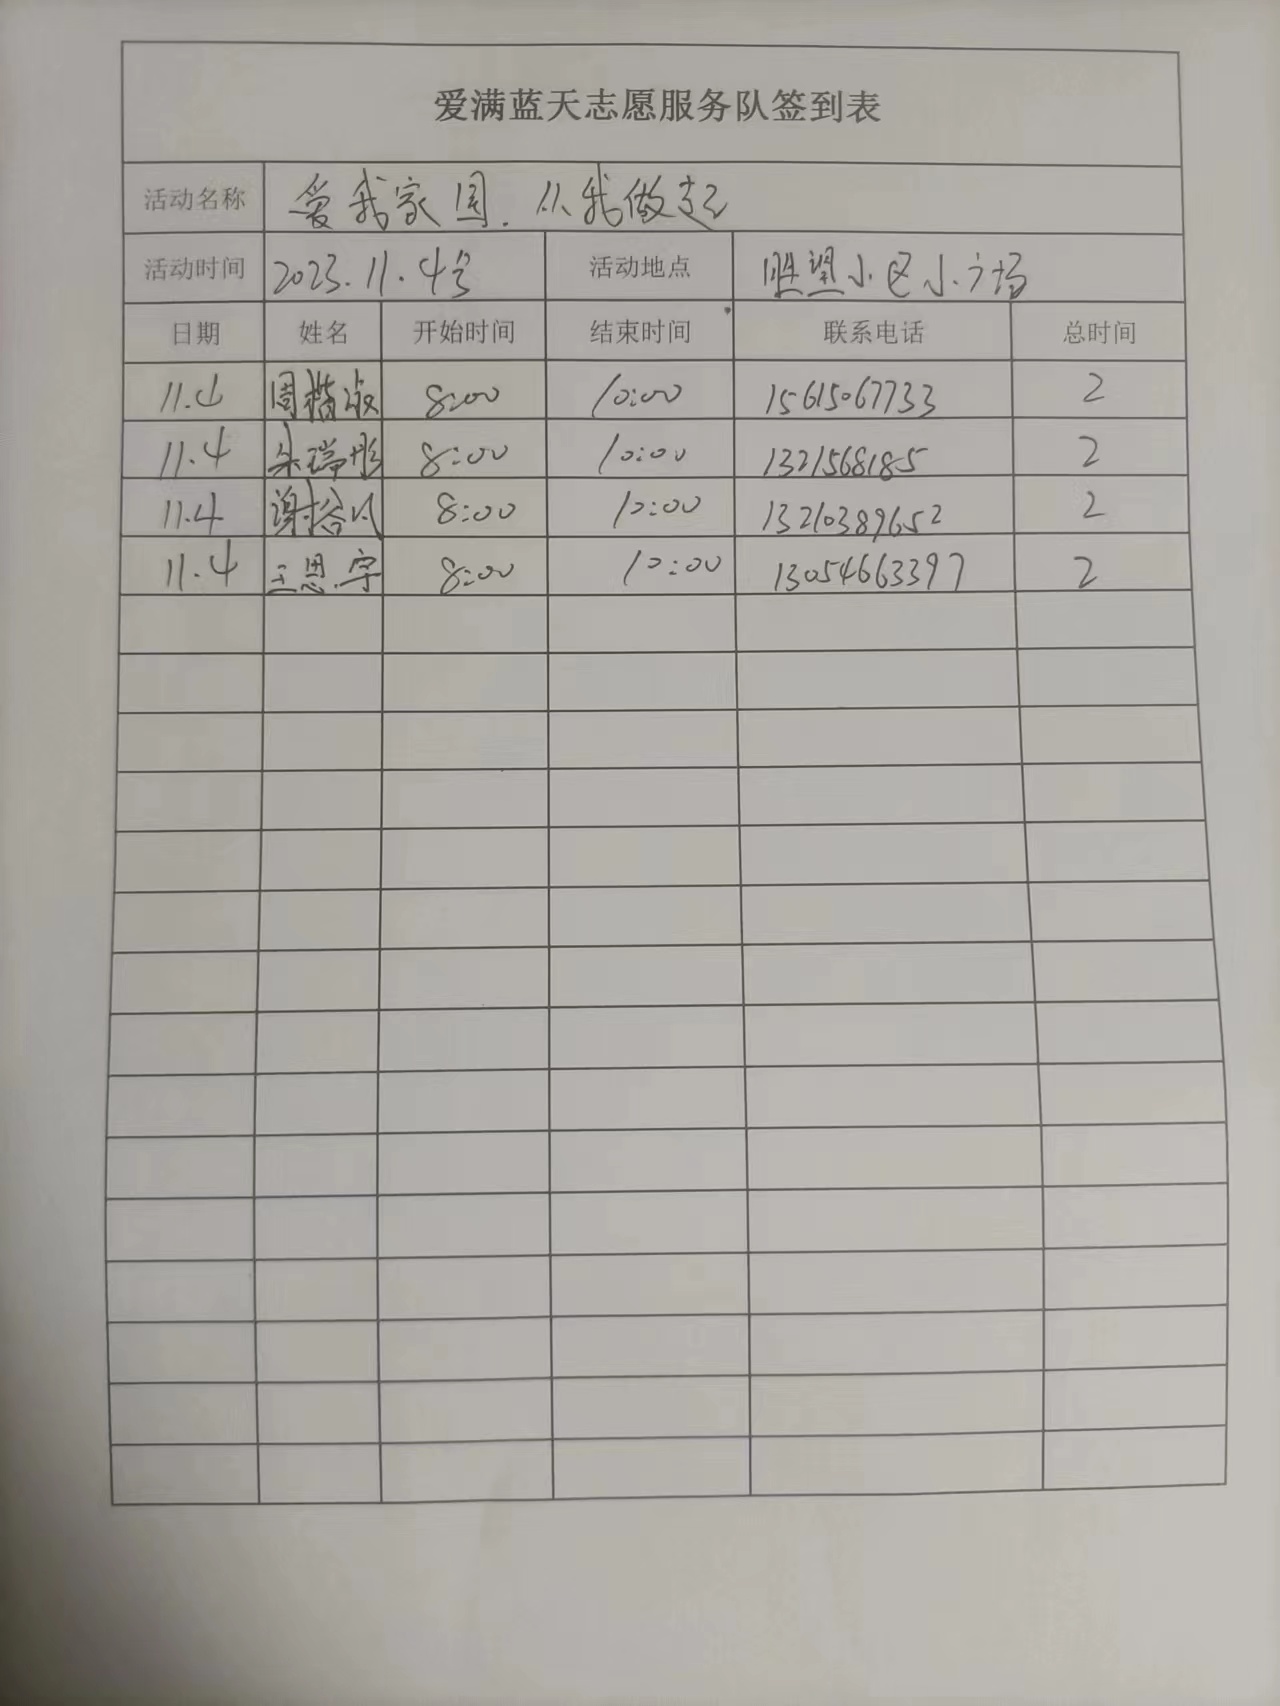 爱满蓝天志愿服务队签到表
活动名称 爱我家园.从我做起
活动时间 2023.11.4号 活动地点 盟望小区小广场
日期 姓名 开始时间 结束时间 联系电话 总时间
11.4 周 8:00 10:00 15615067733 2
11.4 朱瑞彤 8:00 10:00 1321568185 2
11.4 谢 8:00 10:00 13210389652 2
11.4 王恩宇 8:00 10:00 13054663397 2